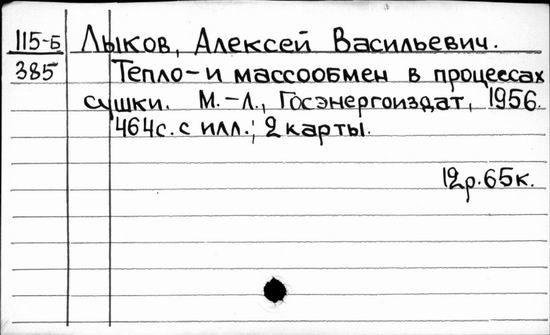 115-Б Лыков, Алексей Васильевич.
385 Тепло- и массообмен в процессах
сушки. М.-Л., Госэнергоиздат, 1956.
464с. с илл.; 2 карты.
12р.65к.